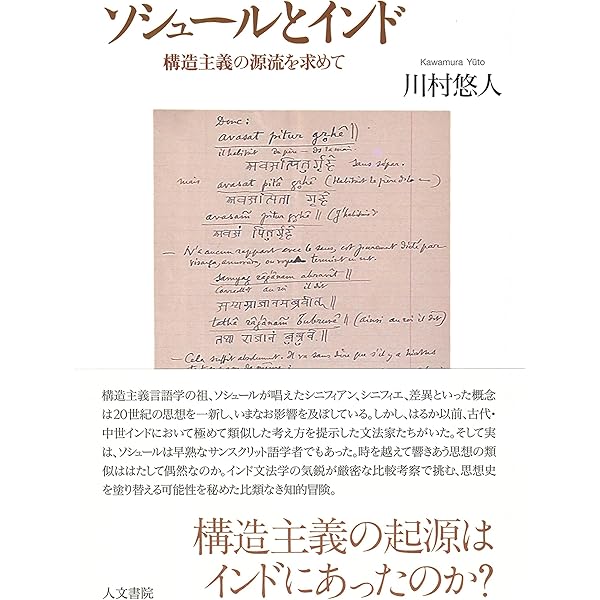 ソシュールとインド
構造主義の源流を求めて
Kawamura Yūto
川村悠人
Donc:
avasat pitur gṛhê ||
il habitait du père – ds la mais.
अवसत्पितुर्गृहे sans sépar.
mais avasat pitâ gṛhê (Habitait le père ds la —)
अवसत्पिता गृहे
pitur gṛhê || (J'habitais d
पितुर्गृहे
— N'a aucun rapport avec le sens, est purement dicté par
samyag râgânam abravît ||
au roi il dit
तथा राजानं
(ainsi au roi il dit)
— Cela suffit absolument. Il va sans dire que s'il y a
構造主義言語学の祖、ソシュールが唱えたシニフィアン、シニフィエ、差異といった概念
は20世紀の思想を一新し、いまなお影響を及ぼしている。しかし、はるか以前、古代・
中世インドにおいて極めて類似した考え方を提示した文法家たちがいた。そして実
は、ソシュールは早熟なサンスクリット語学者でもあった。時を越えて響きあう思想の類
似ははたして偶然なのか。インド文法学の気鋭が厳密な比較考察で挑む、思想史
を塗り替える可能性を秘めた比類なき知的冒険。
構造主義の起源は
インドにあったのか?
人文書院